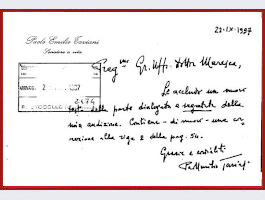 22-IX-1997
Paolo Emilio Taviani
Senatore a vita
Preg.mo Gr. Uff. Dottor Maresca,
Le accludo un nuovo
testo della parte dialogata e segretata della
mia audizione. Contiene - di nuovo - una cor
rezione alla riga 2 della pag. 54.
Grazie e cordialità
2474